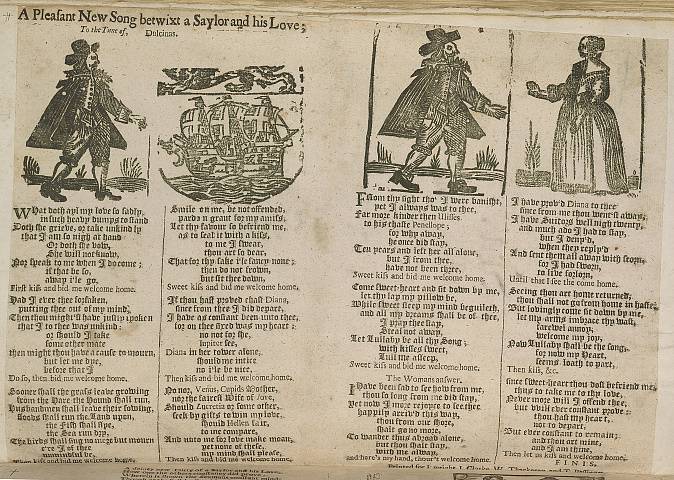 A Pleasant New Song betwixt a Saylor and his Love;
To the Tune of, Dulcinas.
What doth ayl my love so sadly,
in such heavy dumps to stand
Doth she grieve, or take unkindly
that I am so nigh at hand
Or doth she vow,
She will not know,
Nor speak to me when I do come;
if that be so,
away i'le go,
First kiss and bid me welcome home.
Had I ever thee forsaken,
putting thee out of my mind,
Then thou might'st have justly spoken
that I to thee was unkind:
or should I take
some other mate
then might thou have a cause to mourn,
but let me dye,
before that I
Do so, then bid me welcome home.
Sooner shall the grass leave growing
From the Hare the Hound shall run,
Husbandmen shall leave their sowing,
floods shall run the Land upon,
the Fish shall flye,
the Sea run dry,
The birds shall sing no more but mourn
e're I of thee
unmindful be,
Then kiss and bid me welcome home.
Smile on me, be not offended,
pardon grant for my amiss,
Let thy favour so befriend me,
as to seal it with a kiss,
to me I swear,
thou art so dear,
That for thy sake i'le fancy none;
then do not frown,
but sit thee down,
Sweet kiss and bid me welcome home.
If thou hast proved chast Diana,
since from thee I did depart,
I have as constant been unto thee,
for on thee fixed was my heart:
no not for she,
Jupiter see,
Diana in her tower alone,
should me intice
no i'le be nice,
Then kiss and bid me welcome home.
No nor, Venus, Cupids Mother,
nor the fairest Wife of Jove,
Should Lucretia or some other,
seek by gifts to win my love,
should Hellen fair,
to me compare,
And unto me for love make moan,
yet none of these,
my mind shall please,
Then kiss and bid me welcome home.
From thy sight tho' I were banisht,
yet I always was to thee,
Far more kinder then Ulisses,
to his chaste Penellope;
for why away,
he once did stay,
Ten years and left her all alone,
but I from thee,
have not been three,
Sweet kiss and bid me welcome home.
Come sweet-heart and sit down by me,
let thy lap my pillow be,
While sweet sleep my mind beguileth,
and all my dreams shall be of thee,
I pray thee stay,
Steal not away,
Let Lullaby be all thy Song;
with kisses sweet,
Lull me asleep,
Sweet kiss and bid me welcome home.
The Womans answer.
I Have been sad to see how from me,
thou so long from me did stay,
Yet now I more rejoyce to see thee
happily arriv'd this way,
thou from our shore,
shalt go no more,
To wander thus abroad alone,
but thou shalt stay,
with me alway,
and here's my hand, thour't welcome home.
I have prov'd Diana to thee
since from me thou went'st away,
I have Suitors well nigh twenty,
and much ado I had to stay,
but I deny'd,
when they reply'd
And sent them all away with scorn,
for I had sworn,
to live forlorn,
Until that I see thee come home.
Seeing thou art home returned,
thou shalt not go from home in haste,
But lovingly come sit down by me,
let thy arms imbrace thy wast,
farewel annoy,
welcome my joy,
Now Lullaby shall be the song,
for now my Heart,
seems loath to part,
Then kiss, &c.
since sweet-heart thou dost befriend me,
thus to take me to thy love,
Never more will I offend thee,
but will ever constant prove:
thou hast my heart,
not to depart,
But ever constant to remain;
and thou art mine,
and I am thine,
Then let us kiss and welcome home.
FINIS.